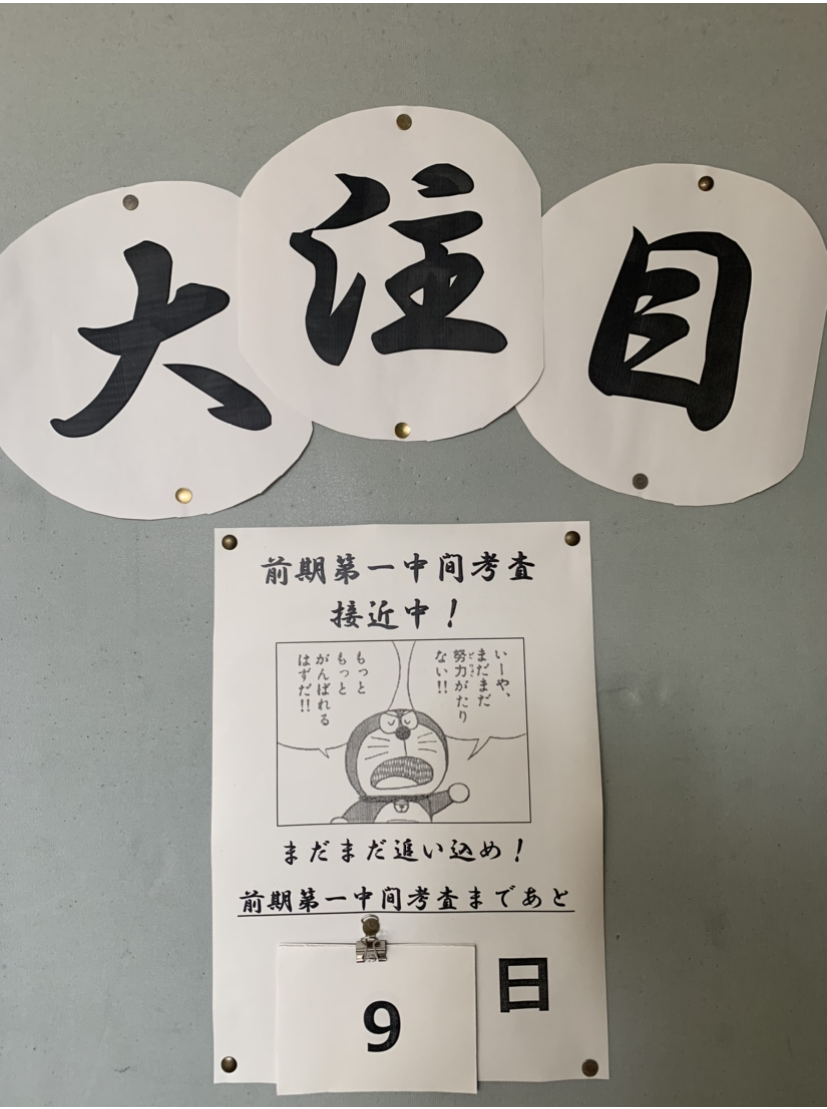 大注目
前期第一中間考査
接近中！
いーや、
まだまだ
努力がたり
ない!!
もっと
もっと
がんばれる
はずだ!!
まだまだ追い込め！
前期第一中間考査まであと
9日